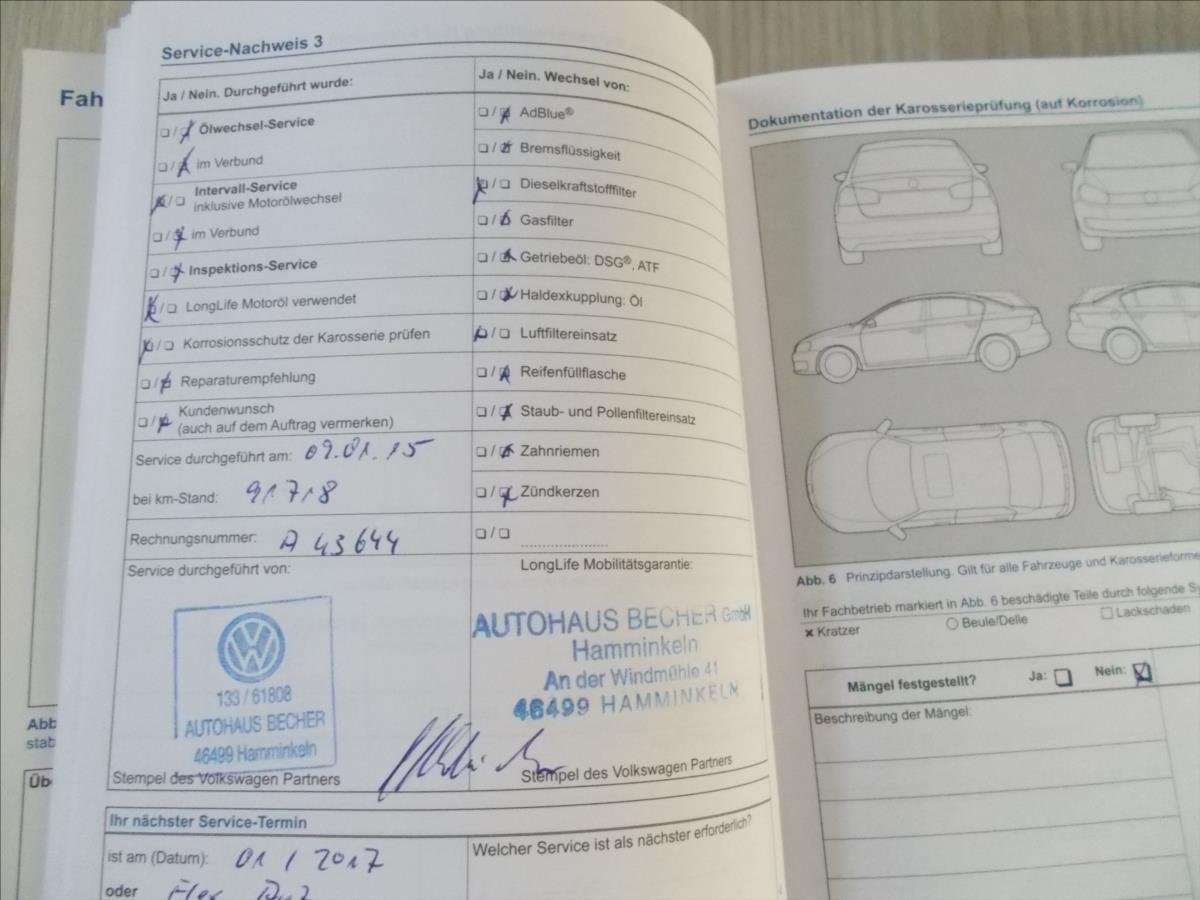 Fah
Service-Nachweis 3
Ja / Nein. Durchgeführt wurde:
Ölwechsel-Service
im Verbund
Intervall-Service
inklusive Motorölwechsel
im Verbund
Inspektions-Service
LongLife Motoröl verwendet
Korrosionsschutz der Karosserie prüfen
Reparaturempfehlung
Kundenwunsch
(auch auf dem Auftrag vermerken)
Service durchgeführt am: 09.01.15
bei km-Stand: 91718
Rechnungsnummer: A 43644
Ja / Nein. Wechsel von:
AdBlue®
Bremsflüssigkeit
Dieselkraftstofffilter
Gasfilter
Getriebeöl: DSG®, ATF
Haldexkupplung: Öl
Luftfiltereinsatz
Reifenfüllflasche
Staub- und Pollenfiltereinsatz
Zahnriemen
Zündkerzen
Service durchgeführt von:
133 / 61808
AUTOHAUS BECHER
46499 Hamminkeln
Stempel des Volkswagen Partners
LongLife Mobilitätsgarantie:
AUTOHAUS BECHER GmbH
Hamminkeln
An der Windmühle 41
46499 HAMMINKELN
Stempel des Volkswagen Partners
Ihr nächster Service-Termin
ist am (Datum): 01 / 2017
oder
Welcher Service ist als nächster erforderlich?
Abb
stab
Üb
Dokumentation der Karosserieprüfung (auf Korrosion)
Abb. 6 Prinzipdarstellung. Gilt für alle Fahrzeuge und Karosserieforme
Ihr Fachbetrieb markiert in Abb. 6 beschädigte Teile durch folgende Sy
× Kratzer Beule/Delle Lackschaden
Mängel festgestellt? Ja: Nein:
Beschreibung der Mängel: